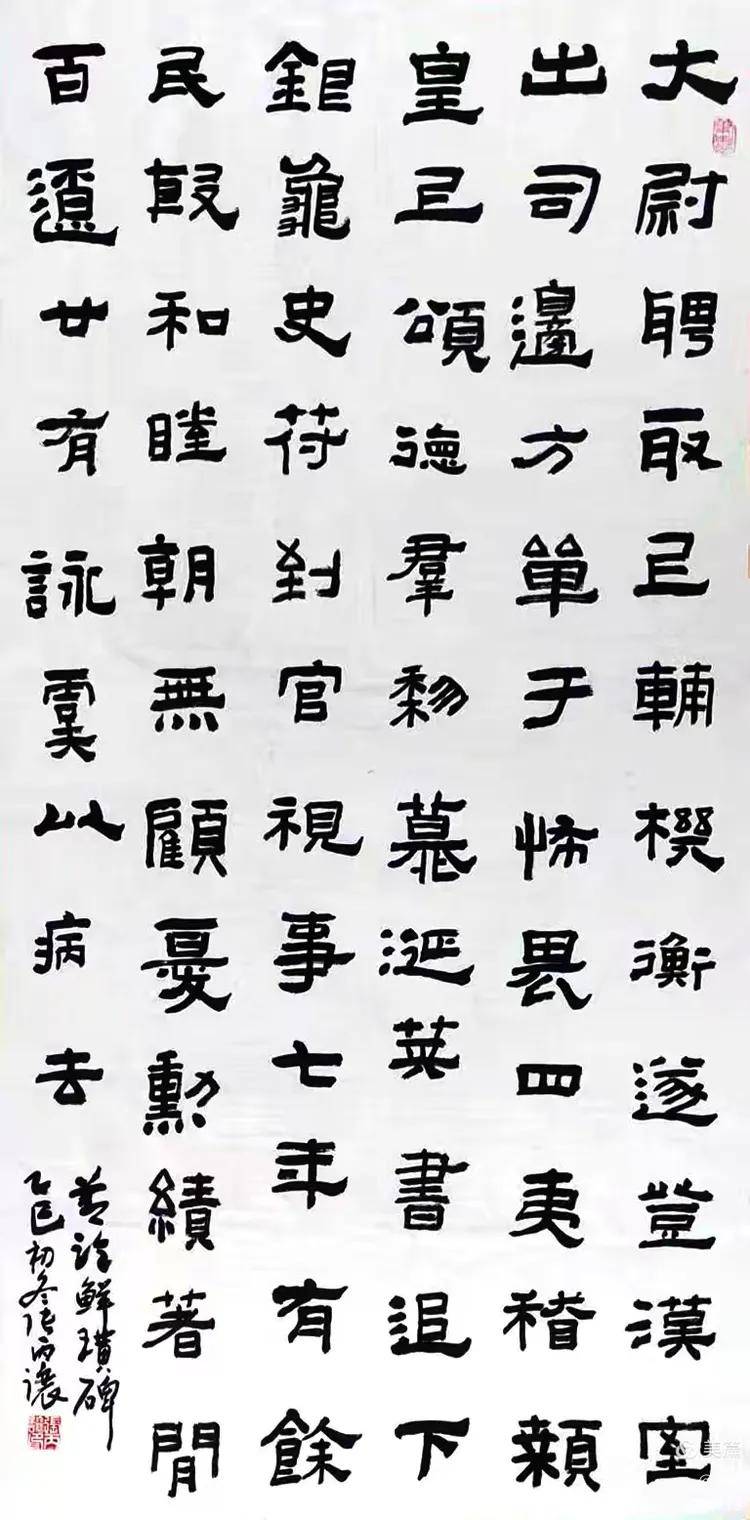 大尉聘取㠯輔機衡遂登漢室
出司邊方單于怖畏四夷稽顙
皇㠯頌德羣黎慕涎英書追下
銀龜史符到官視事七年有餘
民殷和睦朝無顧憂勳績著聞
百遼廿有詠虞以病去
節臨鮮璜碑
乙巳初冬張丙讓
美篇